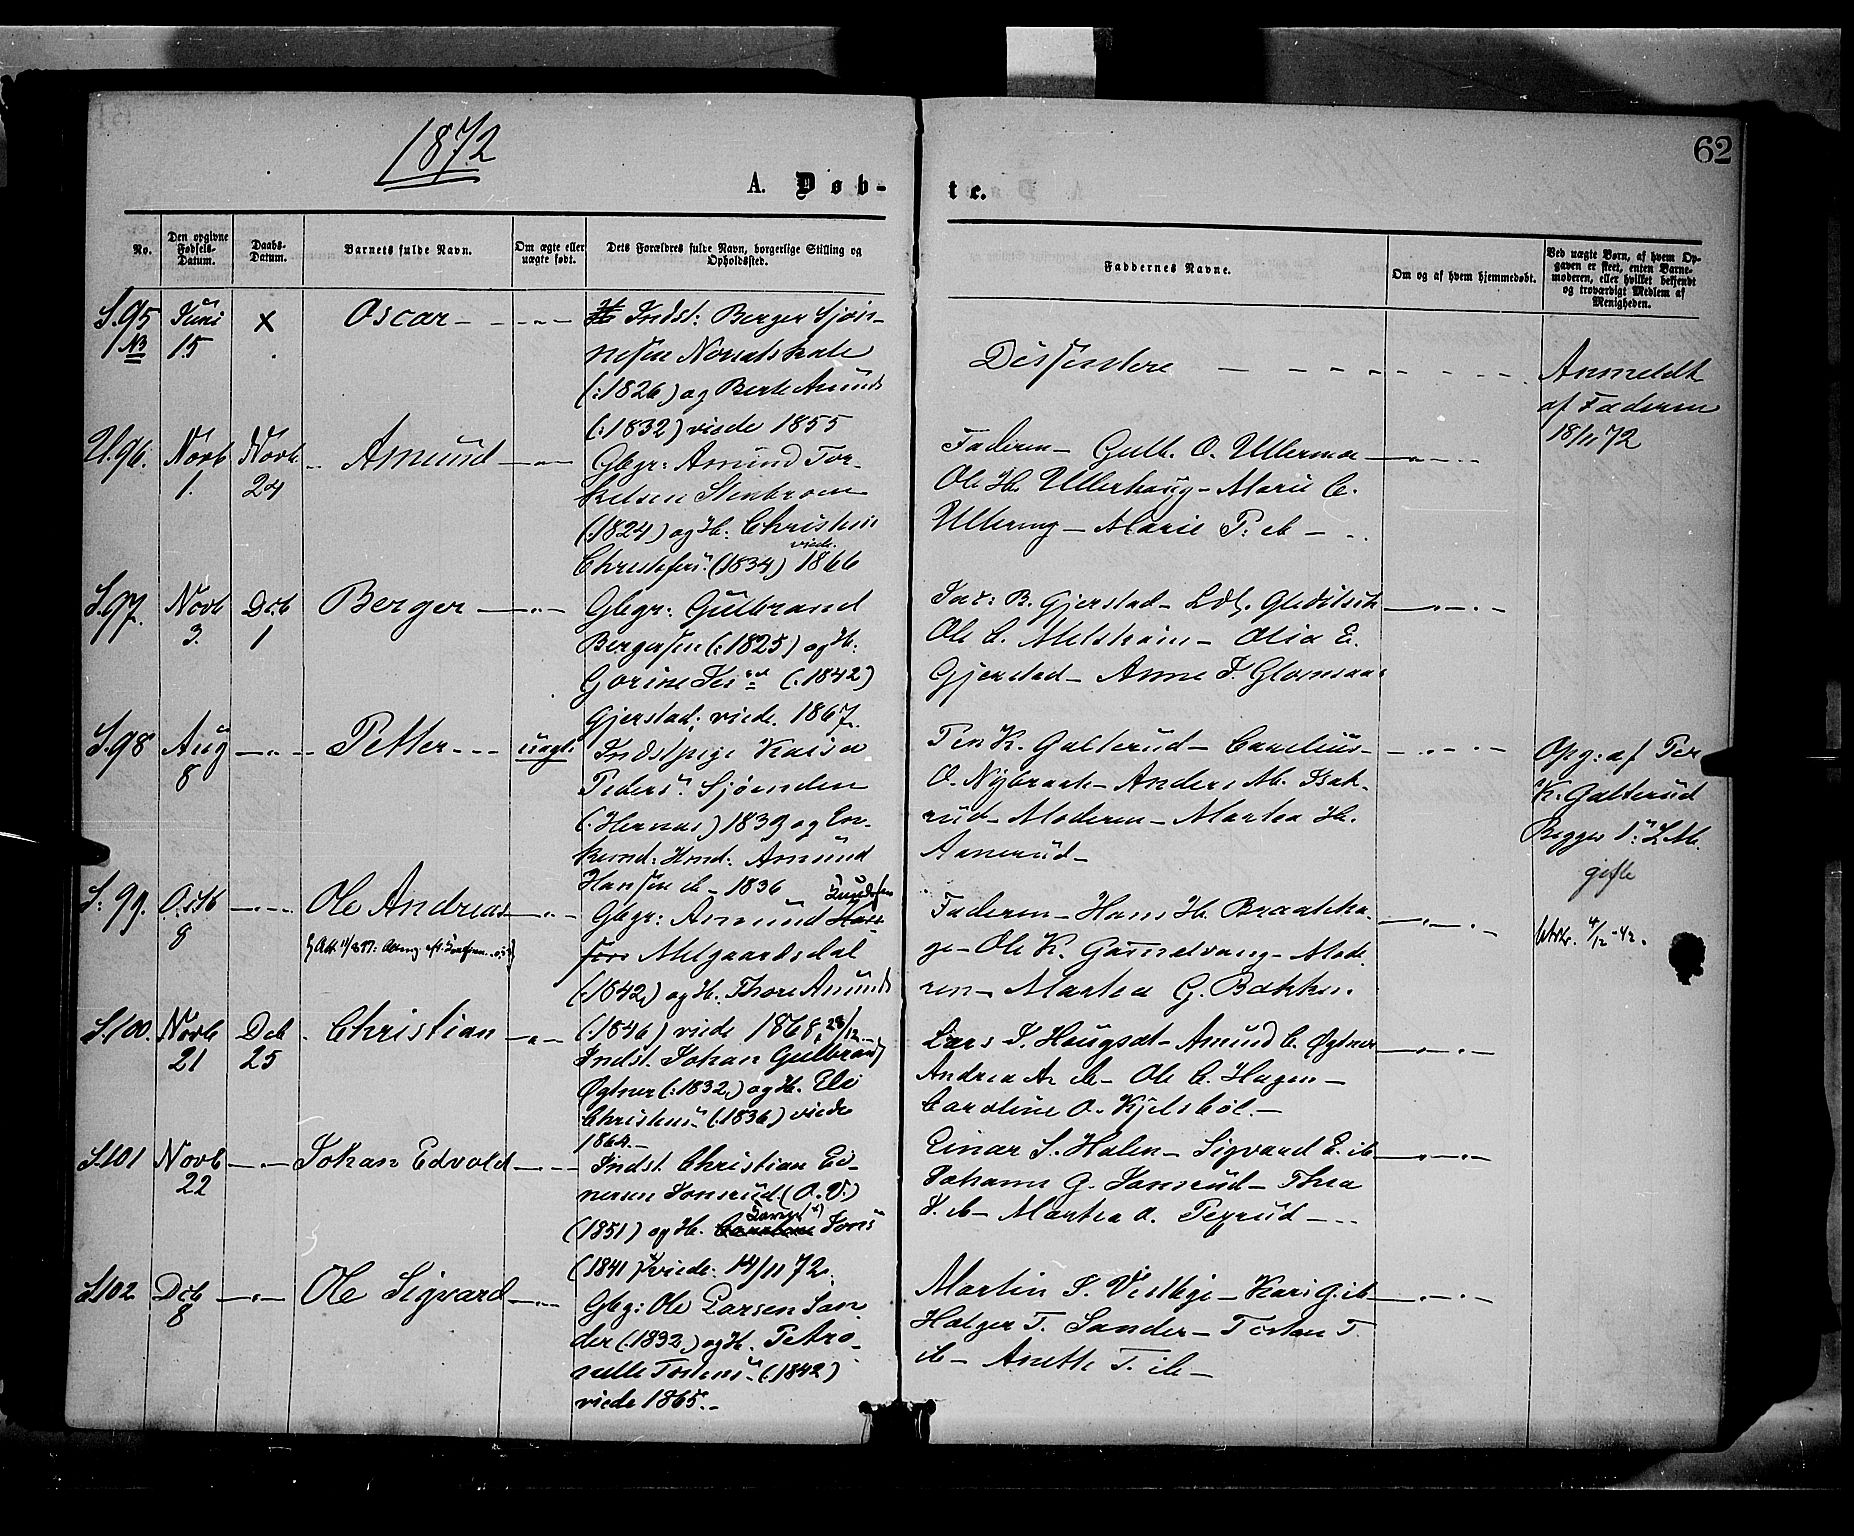 1872
62
A. Døb-
te.
No.
Den opgivne Fødsels-Datum.
Daabs-Datum.
Barnets fulde Navn.
Om ægte eller uægte født.
Dets Forældres fulde Navn, borgerlige Stilling og Opholdssted.
Faddernes Navne.
Om og af hvem hjemmedøbt.
Ved uægte Børn, af hvem Opgaven er skeet, enten Barnemoderen, eller hvilket bekjendt og troværdigt Medlem af Menigheden.
S. 95
N3
Juni
15
x
Oscar
Indst: Berger Sjøn-
nesen
(:1826) og Berte Amunds
(:1832) viede 1855
Dissentere
Anmeldt
af Faderen
18/11 72
U. 96.
Novb
1.
Novb.
24
Amund
Gbgr: Amund Tor-
kelsen Stenbroen
(:1824) og H. Christine
Christofers. (1834) viede 1866
Faderen - Gulb. O. Ulleren
Ole H. Ullerhaug - Marie C.
Ullereng - Marie P. ib -
S. 97.
Novb
3.
Dcb
1
Berger
Gbgr: Gulbrand
Bergersen (:1825) og H:
Gorine (:1842)
Gjerstad; viede 1867.
B. Gjerstad -
Ole C. - Olia E.
Gjerstad - Anne J.
S. 98
Aug
8
Petter
uægte
Indstpige Kaisa
Peders. Sjømoen
(:Hernæs) 1839 og En-
kemd: Amund
Hansen ib - 1836
Per K. Galterud - Cornelius
O. Nybraat - Anders M. Isak-
rud - Moderen - Martea H.
Aanerud -
Opg: af Per
K. Galterud
Begges 1. L.M.
gifte
S. 99.
Octb
8
Ole Andreas
Gbgr: Amund Knudsen
Melgaardsdal
(:1842) og H. Thore Amunds
(:1846) viede 1868, 28/12
Faderen - Hans H. Braatha-
ge - Ole K. Gammelvang - Mode-
ren - Martea G. Bakken.
4/12-42.
S. 100.
Novb
21
Dcb
25
Christian
Indst. Johan Gulbrands
Øgtner (:1832) og H. Eli
Christens. (:1836) viede
1864.
Lars J. Haugset - Amund C. Øgtner
Andrea A. ib - Ole C. Hagen -
Caroline O. Kjelsbøl.
S. 101
Novb
22
Johan Edvold
Indst. Christian Ei-
nersen Sonsrud (O.V.)
(1851) og H. Jons
(1841) viede: 14/11 72.
Einar S. Halen - Sigvard E. ib
Johanne G. Sonsrud - Thea
J. ib - Martea O. Pegrud
S. 102
Dcb
8
Ole Sigvard
Gbg: Ole Larsen San-
der (:1832) og H. Petro-
nelle Tostens. (:1842)
viede 1865.
Martin S. Vestbye - Kari G. ib
Holger T. Sander - Tosten T.
ib - Anette T. ib -